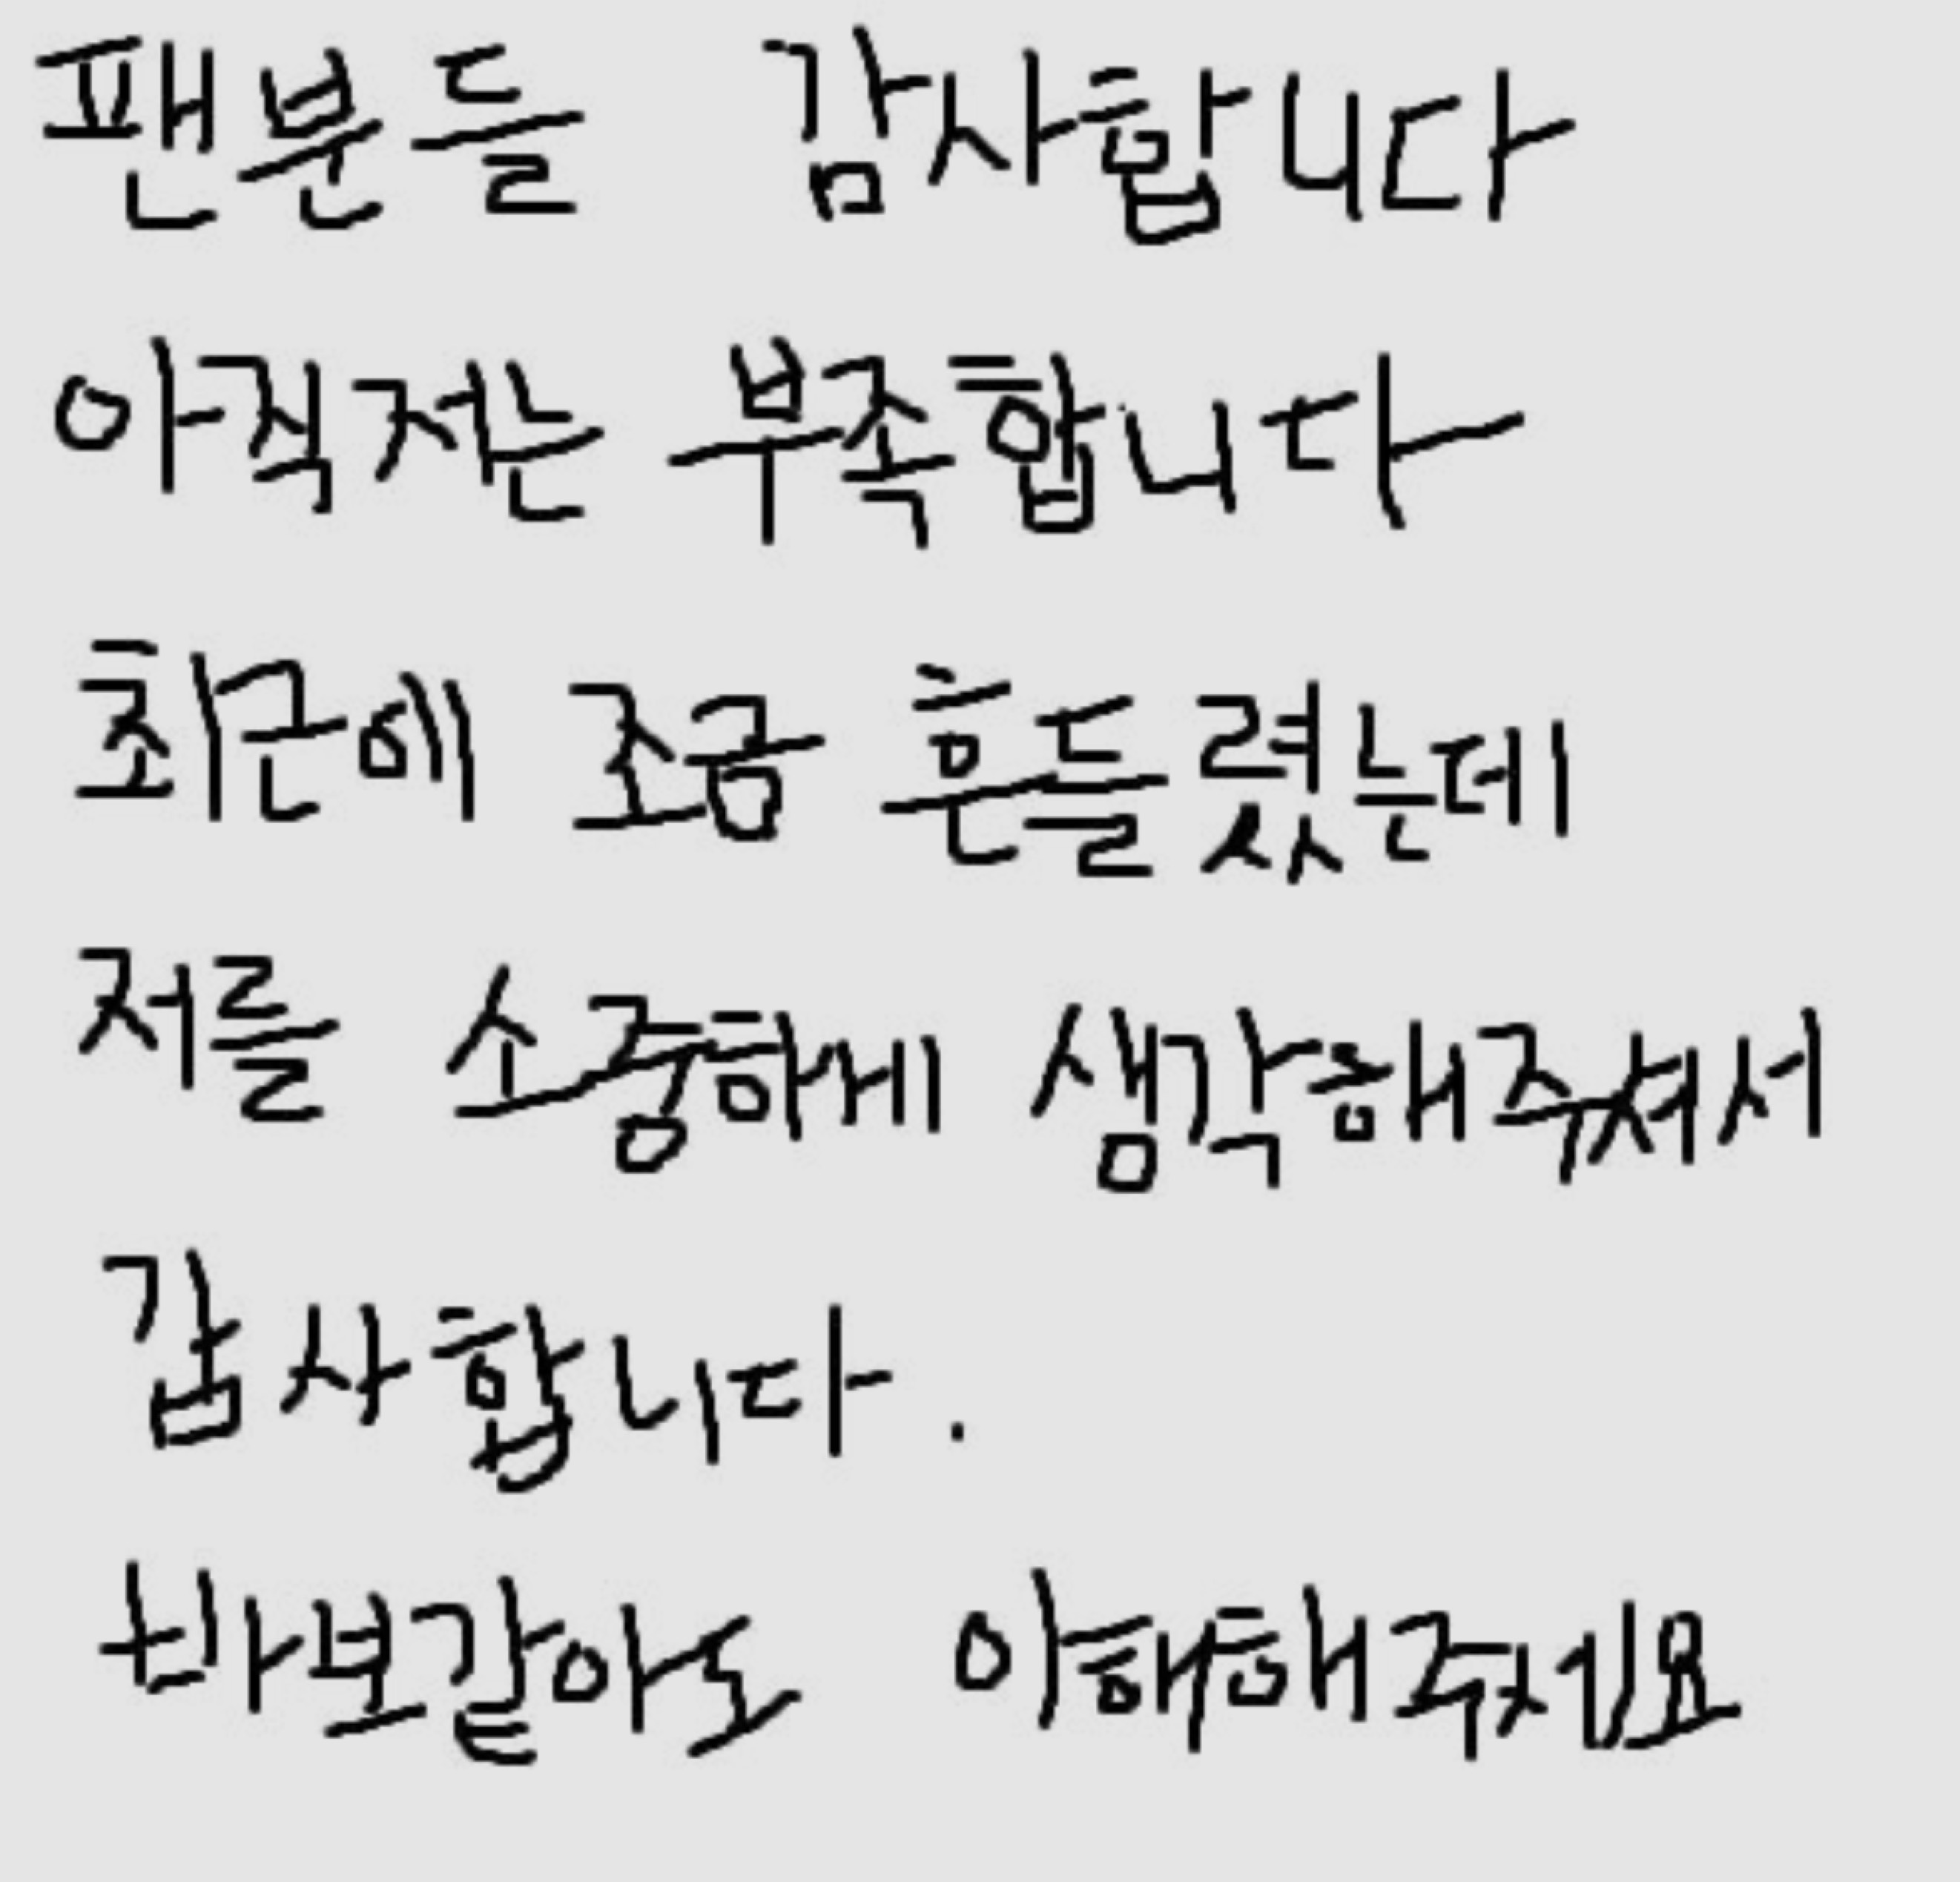 팬분들 감사합니다
아직저는 부족합니다
최근에 조금 흔들렸는데
저를 소중하게 생각해주셔서
갑사합니다.
바보같아도 이해해주세요